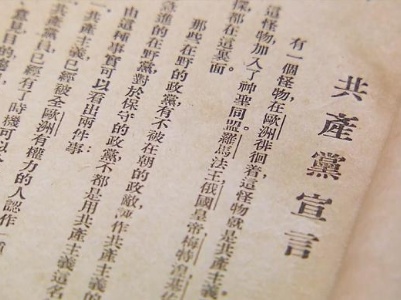 共產黨宣言
有一個怪物,在歐洲徘徊着,這怪物就是共產主義。
這怪物加入了神聖同盟。羅馬法王,俄國皇帝,梅特涅,基佐
探,都在這裏面
那些在野的政黨,有不被在朝的政敵,誣作共產主義的
進的在野黨,對於保守的政黨,不都是用共產主義這名
由這種事實可以看出兩件事:
一、共產主義,已經被全歐洲有權力的人認作一
共產黨員,已經有了時機可以
意見目的